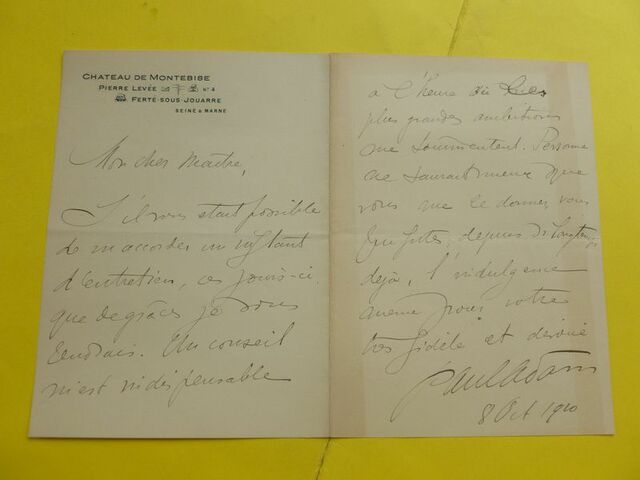 CHATEAU DE MONTEBISE
PIERRE LEVÉE N° 4
FERTÉ-SOUS-JOUARRE
SEINE & MARNE
Mon cher Maître,
S'il vous était possible
de m'accorder un instant
d'entretien, ces jours-ci
que de grâces je vous
rendrais. Un conseil
m'est indispensable
à l'heure où les
plus grandes ambitions
me tourmentent. Personne
ne saurait mieux que
vous me le donner, vous
qui, depuis si longtemps
déjà, l'indulgence
même pour votre
très fidèle et dévoué
Paul Adam
8 Oct 1910